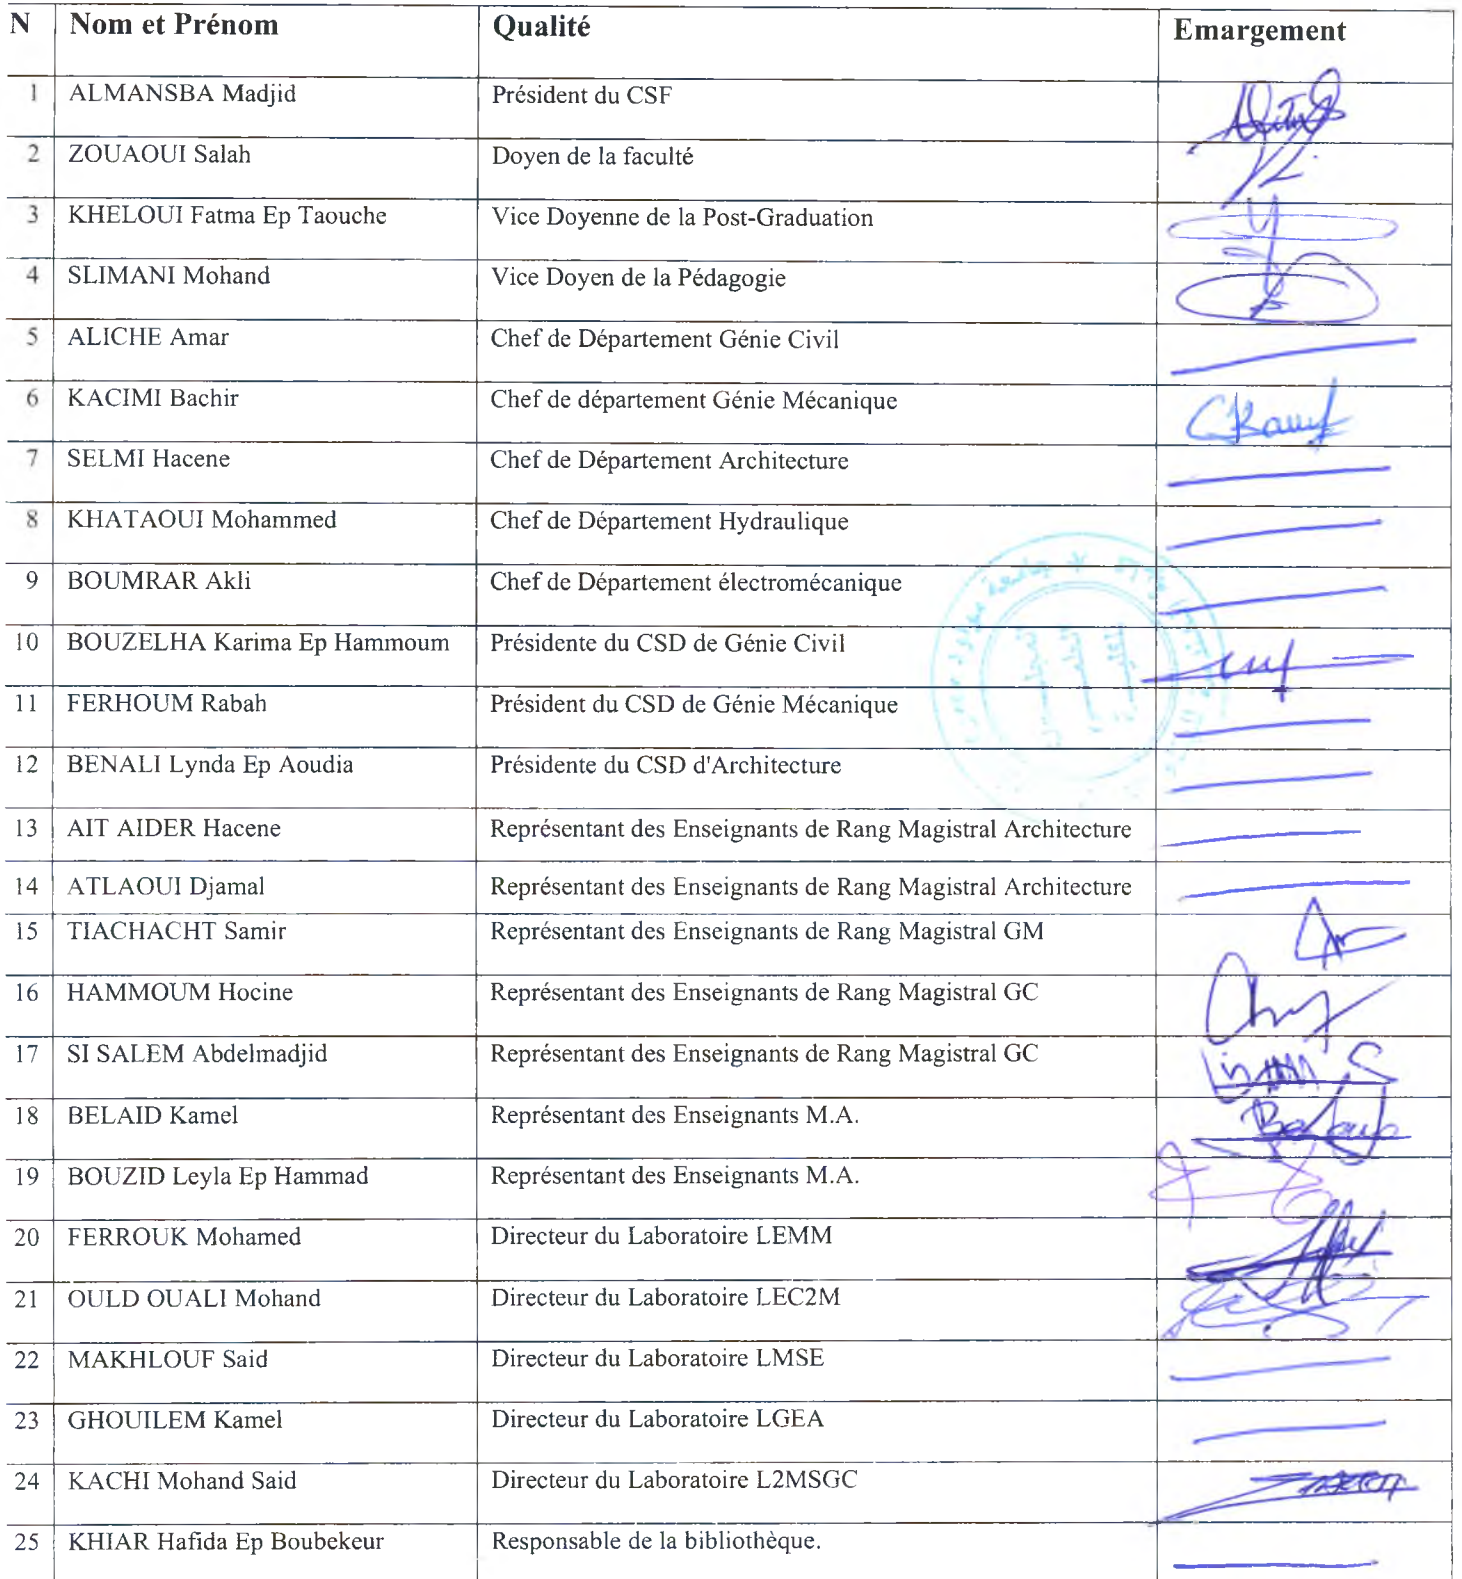 N Nom et Prénom Qualité Emargement
1 ALMANSBA Madjid Président du CSF
2 ZOUAOUI Salah Doyen de la faculté
3 KHELOUI Fatma Ep Taouche Vice Doyenne de la Post-Graduation
4 SLIMANI Mohand Vice Doyen de la Pédagogie
5 ALICHE Amar Chef de Département Génie Civil
6 KACIMI Bachir Chef de département Génie Mécanique
7 SELMI Hacene Chef de Département Architecture
8 KHATAOUI Mohammed Chef de Département Hydraulique
9 BOUMRAR Akli Chef de Département électromécanique
10 BOUZELHA Karima Ep Hammoum Présidente du CSD de Génie Civil
11 FERHOUM Rabah Président du CSD de Génie Mécanique
12 BENALI Lynda Ep Aoudia Présidente du CSD d'Architecture
13 AIT AIDER Hacene Représentant des Enseignants de Rang Magistral Architecture
14 ATLAOUI Djamal Représentant des Enseignants de Rang Magistral Architecture
15 TIACHACHT Samir Représentant des Enseignants de Rang Magistral GM
16 HAMMOUM Hocine Représentant des Enseignants de Rang Magistral GC
17 SI SALEM Abdelmadjid Représentant des Enseignants de Rang Magistral GC
18 BELAID Kamel Représentant des Enseignants M.A.
19 BOUZID Leyla Ep Hammad Représentant des Enseignants M.A.
20 FERROUK Mohamed Directeur du Laboratoire LEMM
21 OULD OUALI Mohand Directeur du Laboratoire LEC2M
22 MAKHLOUF Said Directeur du Laboratoire LMSE
23 GHOUILEM Kamel Directeur du Laboratoire LGEA
24 KACHI Mohand Said Directeur du Laboratoire L2MSGC
25 KHIAR Hafida Ep Boubekeur Responsable de la bibliothèque.